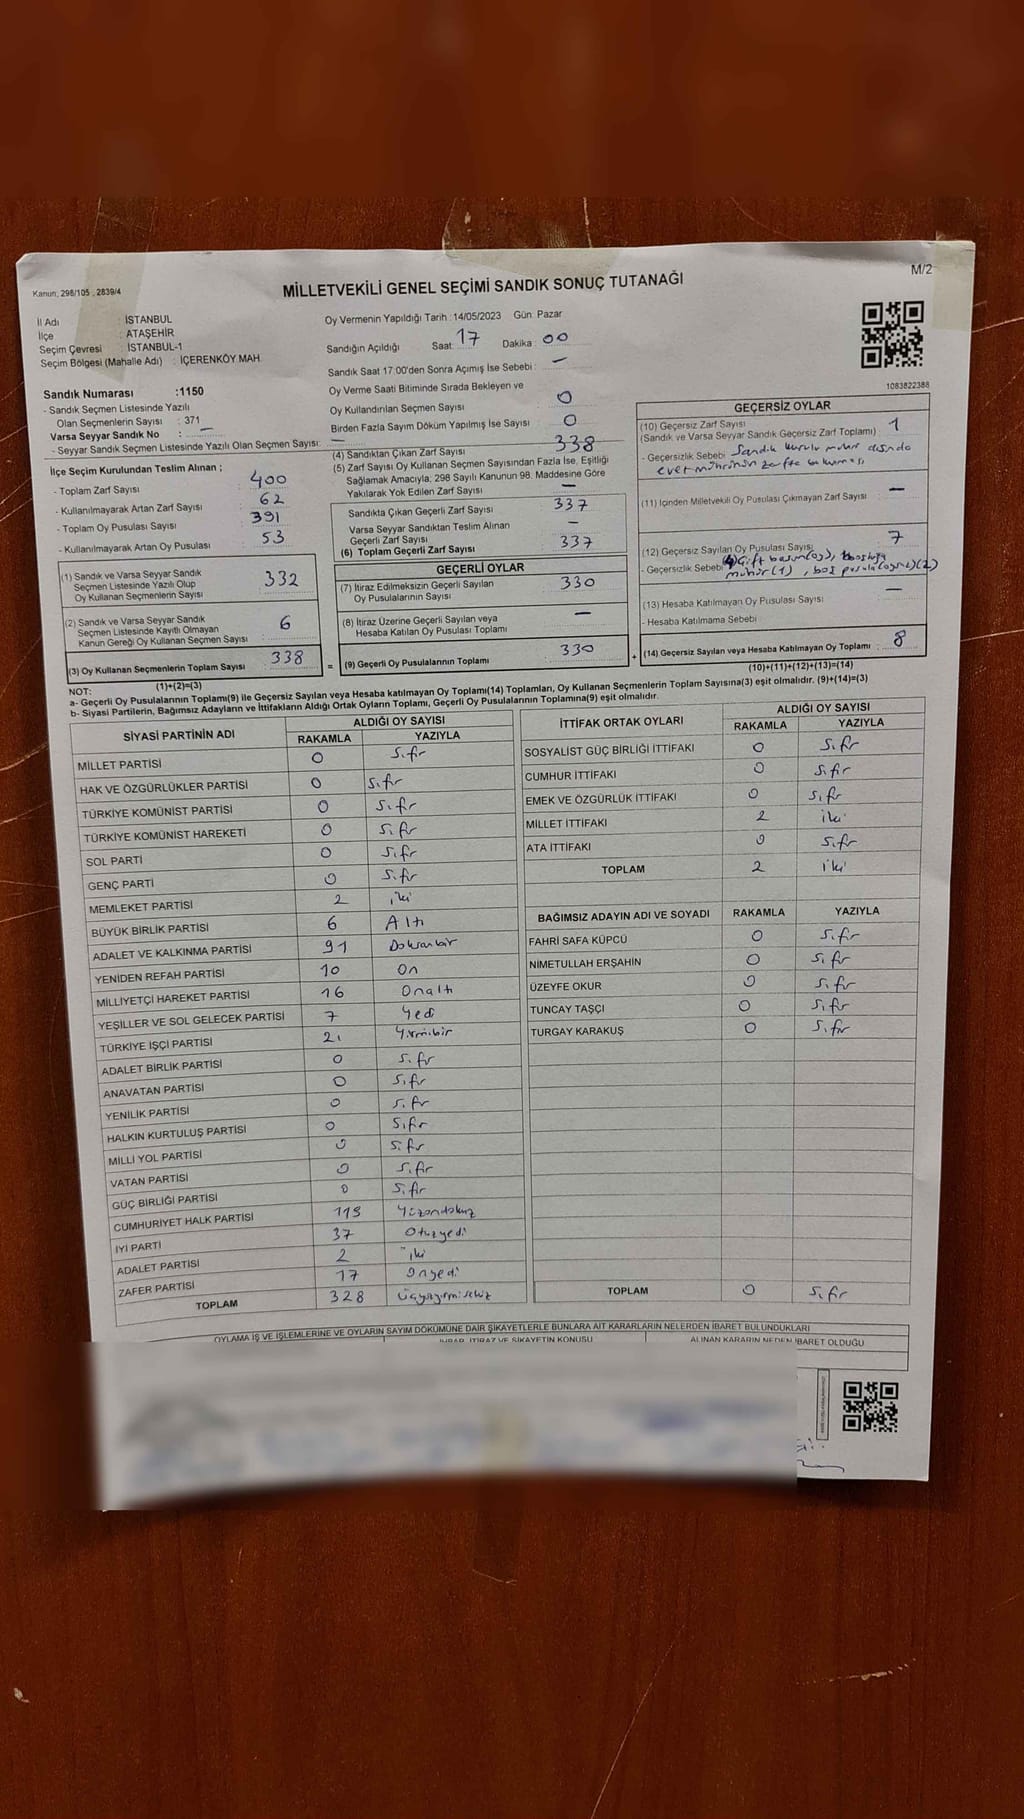 M/2
Kanun, 298/105 , 2839/4
MİLLETVEKİLİ GENEL SEÇİMİ SANDIK SONUÇ TUTANAĞI
1083822388
İl Adı : İSTANBUL
İlçe : ATAŞEHİR
Seçim Çevresi : İSTANBUL-1
Seçim Bölgesi (Mahalle Adı) : İÇERENKÖY MAH.
Sandık Numarası :1150
- Sandık Seçmen Listesinde Yazılı
Olan Seçmenlerin Sayısı : 371
Varsa Seyyar Sandık No : —
- Seyyar Sandık Seçmen Listesinde Yazılı Olan Seçmen Sayısı: —
Oy Vermenin Yapıldığı Tarih : 14/05/2023 Gün: Pazar
Sandığın Açıldığı Saat: 17 Dakika : 00
Sandık Saat 17:00'den Sonra Açımış İse Sebebi : —
Oy Verme Saati Bitiminde Sırada Bekleyen ve
Oy Kullandırılan Seçmen Sayısı 0
Birden Fazla Sayım Döküm Yapılmış İse Sayısı 0
İlçe Seçim Kurulundan Teslim Alınan ;
- Toplam Zarf Sayısı 400
- Kullanılmayarak Artan Zarf Sayısı 62
- Toplam Oy Pusulası Sayısı 391
- Kullanılmayarak Artan Oy Pusulası 53
(1) Sandık ve Varsa Seyyar Sandık
Seçmen Listesinde Yazılı Olup
Oy Kullanan Seçmenlerin Sayısı 332
(2) Sandık ve Varsa Seyyar Sandık
Seçmen Listesinde Kayıtlı Olmayan
Kanun Gereği Oy Kullanan Seçmen Sayısı 6
(3) Oy Kullanan Seçmenlerin Toplam Sayısı 338
(1)+(2)=(3)
(4) Sandıktan Çıkan Zarf Sayısı 338
(5) Zarf Sayısı Oy Kullanan Seçmen Sayısından Fazla İse, Eşitliği
Sağlamak Amacıyla; 298 Sayılı Kanunun 98. Maddesine Göre
Yakılarak Yok Edilen Zarf Sayısı —
Sandıkta Çıkan Geçerli Zarf Sayısı 337
Varsa Seyyar Sandıktan Teslim Alınan
Geçerli Zarf Sayısı —
(6) Toplam Geçerli Zarf Sayısı 337
GEÇERLİ OYLAR
(7) İtiraz Edilmeksizin Geçerli Sayılan
Oy Pusulalarının Sayısı 330
(8) İtiraz Üzerine Geçerli Sayılan veya
Hesaba Katılan Oy Pusulası Toplamı —
= (9) Geçerli Oy Pusulalarının Toplamı 330
GEÇERSİZ OYLAR
(10) Geçersiz Zarf Sayısı 1
(Sandık ve Varsa Seyyar Sandık Geçersiz Zarf Toplamı)
- Geçersizlik Sebebi Sandık kurulu mührü dışında
evet mührünün zarfta bulunması
(11) İçinden Milletvekili Oy Pusulası Çıkmayan Zarf Sayısı —
(12) Geçersiz Sayılan Oy Pusulası Sayısı 7
- Geçersizlik Sebebi (4) Çift basım(oy), boşluğa
mühür(1) , boş pusula (2)
(13) Hesaba Katılmayan Oy Pusulası Sayısı —
- Hesaba Katılmama Sebebi
+ (14) Geçersiz Sayılan veya Hesaba Katılmayan Oy Toplamı 8
(10)+(11)+(12)+(13)=(14)
NOT:
a- Geçerli Oy Pusulalarının Toplamı(9) ile Geçersiz Sayılan veya Hesaba katılmayan Oy Toplamı(14) Toplamları, Oy Kullanan Seçmenlerin Toplam Sayısına(3) eşit olmalıdır. (9)+(14)=(3)
b- Siyasi Partilerin, Bağımsız Adayların ve İttifakların Aldığı Ortak Oyların Toplamı, Geçerli Oy Pusulalarının Toplamına(9) eşit olmalıdır.
SİYASİ PARTİNİN ADI ALDIĞI OY SAYISI
RAKAMLA YAZIYLA
MİLLET PARTİSİ 0 Sıfır
HAK VE ÖZGÜRLÜKLER PARTİSİ 0 Sıfır
TÜRKİYE KOMÜNİST PARTİSİ 0 Sıfır
TÜRKİYE KOMÜNİST HAREKETİ 0 Sıfır
SOL PARTİ 0 Sıfır
GENÇ PARTİ 0 Sıfır
MEMLEKET PARTİSİ 2 iki
BÜYÜK BİRLİK PARTİSİ 6 Altı
ADALET VE KALKINMA PARTİSİ 91 Doksanbir
YENİDEN REFAH PARTİSİ 10 On
MİLLİYETÇİ HAREKET PARTİSİ 16 Onaltı
YEŞİLLER VE SOL GELECEK PARTİSİ 7 Yedi
TÜRKİYE İŞÇİ PARTİSİ 21 Yirmibir
ADALET BİRLİK PARTİSİ 0 Sıfır
ANAVATAN PARTİSİ 0 Sıfır
YENİLİK PARTİSİ 0 Sıfır
HALKIN KURTULUŞ PARTİSİ 0 Sıfır
MİLLİ YOL PARTİSİ 0 Sıfır
VATAN PARTİSİ 0 Sıfır
GÜÇ BİRLİĞİ PARTİSİ 0 Sıfır
CUMHURİYET HALK PARTİSİ 119 Yüzondokuz
İYİ PARTİ 37 Otuzyedi
ADALET PARTİSİ 2 iki
ZAFER PARTİSİ 17 Onyedi
TOPLAM 328 Üçyüzyirmisekiz
İTTİFAK ORTAK OYLARI ALDIĞI OY SAYISI
RAKAMLA YAZIYLA
SOSYALİST GÜÇ BİRLİĞİ İTTİFAKI 0 Sıfır
CUMHUR İTTİFAKI 0 Sıfır
EMEK VE ÖZGÜRLÜK İTTİFAKI 0 Sıfır
MİLLET İTTİFAKI 2 iki
ATA İTTİFAKI 0 Sıfır
TOPLAM 2 iki
BAĞIMSIZ ADAYIN ADI VE SOYADI RAKAMLA YAZIYLA
FAHRİ SAFA KÜPCÜ 0 Sıfır
NİMETULLAH ERŞAHİN 0 Sıfır
ÜZEYFE OKUR 0 Sıfır
TUNCAY TAŞÇI 0 Sıfır
TURGAY KARAKUŞ 0 Sıfır
TOPLAM 0 Sıfır
OYLAMA İŞ VE İŞLEMLERİNE VE OYLARIN SAYIM DÖKÜMÜNE DAİR ŞİKAYETLERLE BUNLARA AİT KARARLARIN NELERDEN İBARET BULUNDUKLARI
İHBAR, İTİRAZ VE ŞİKAYETİN KONUSU ALINAN KARARIN NEDEN İBARET OLDUĞU